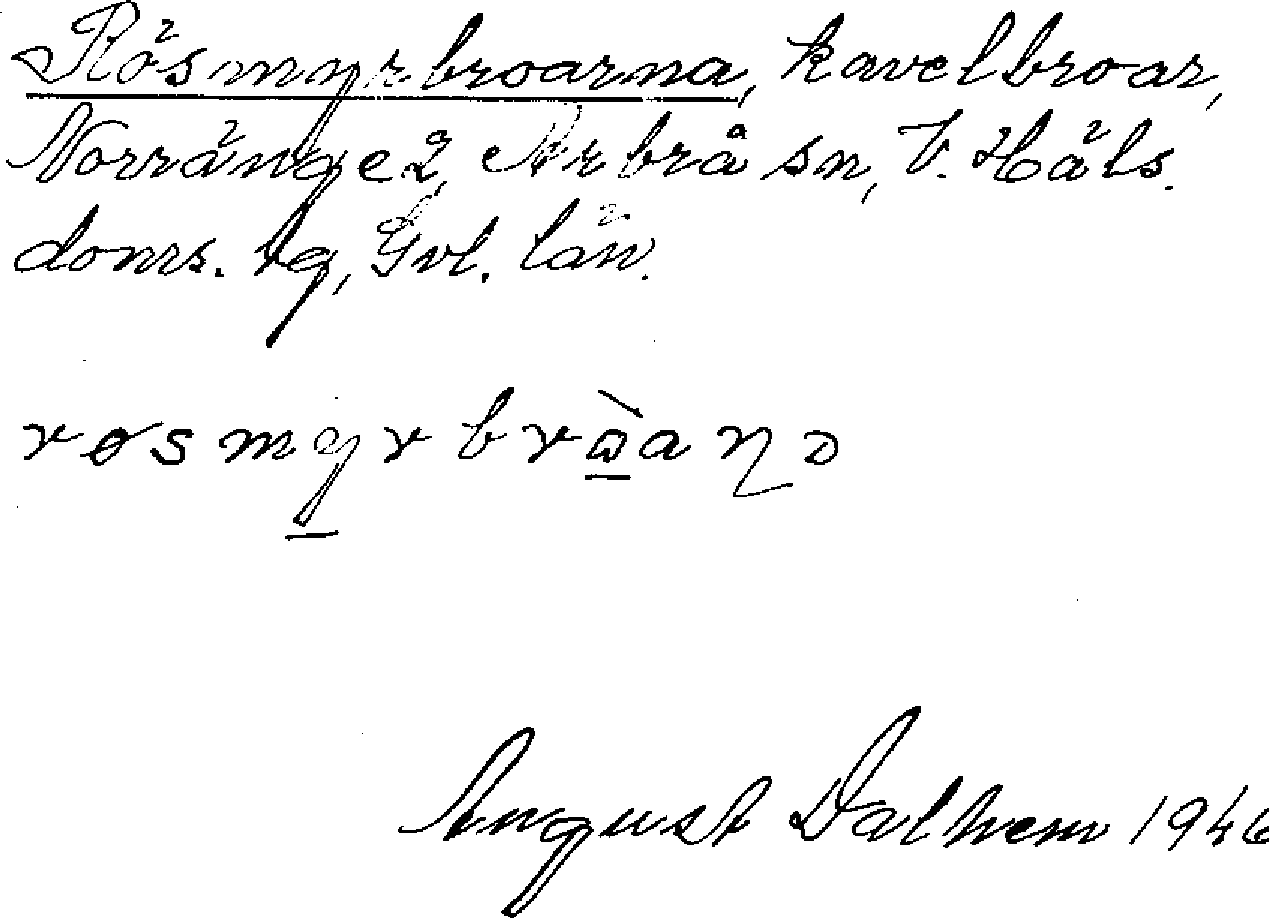 Rösmyrbroarna, kavelbroar,
Norränge 2, Arbrå sn, V. Häls.
doms. lg, Gvl. län.
røsmyrbrɷ̀aɳɔ
August Dalhem 1946